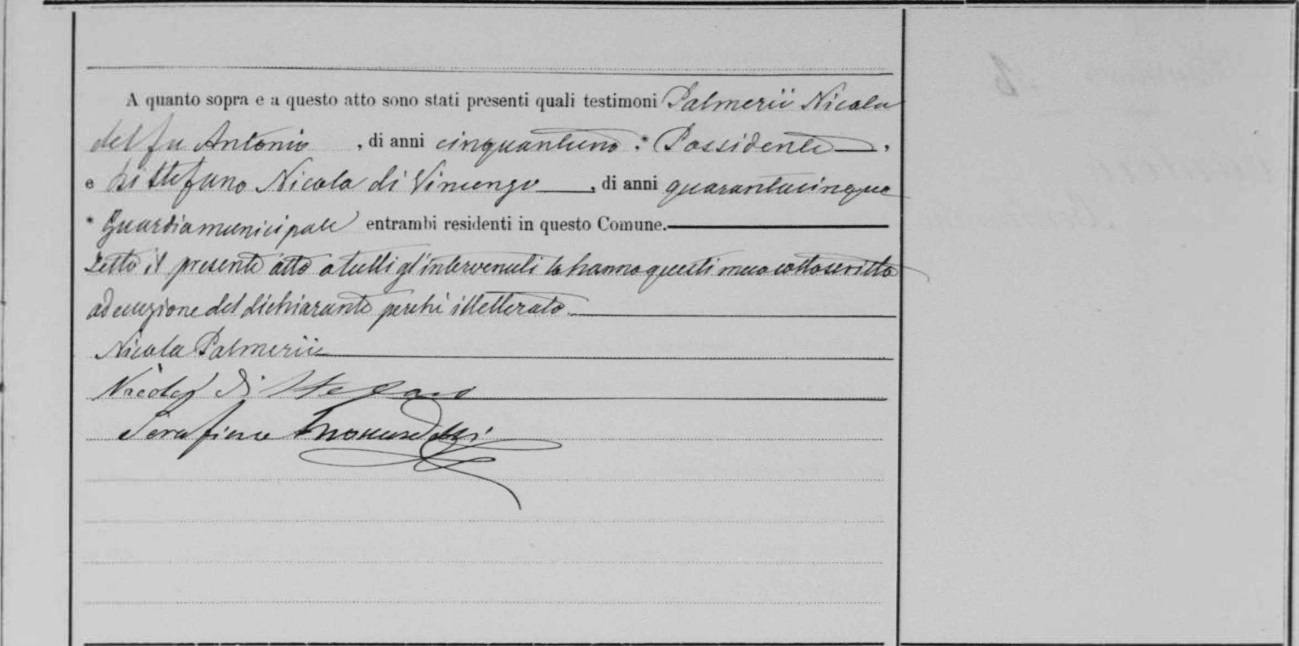 A quanto sopra e a questo atto sono stati presenti quali testimoni Palmerii Nicola
del fu Antonio, di anni cinquantuno : Possidente,
e Di Stefano Nicola di Vincenzo, di anni quarantacinque
Guardia municipale entrambi residenti in questo Comune.
Letto il presente atto a tutti gl'intervenuti lo hanno questi meco sottoscritto
ad eccezione del dichiarante perchè illetterato.
Nicola Palmerii
Nicola Di Stefano
Serafino